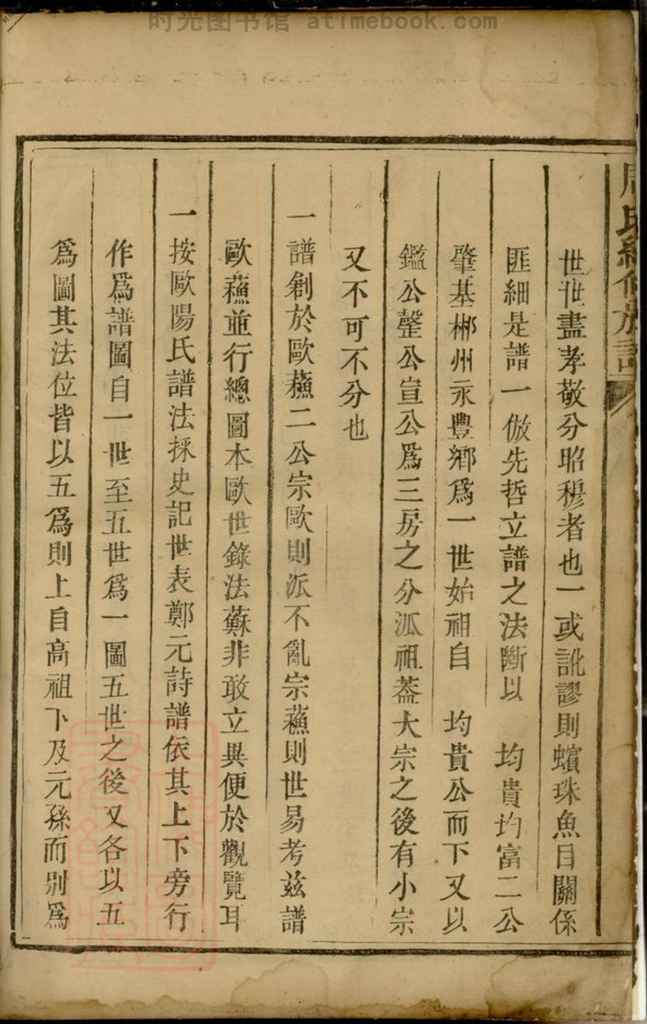 时光图书馆 atimebook.com
氏續修族譜
世世盡孝敬分昭穆者也一或訛謬則蠙珠魚目關係
匪細是譜一倣先哲立譜之法斷以 均貴均富二公
肇基郴州永豐鄉爲一世始祖自 均貴公而下又以
鑑公鏧公宣公爲三房之分派祖葢大宗之後有小宗
又不可不分也
一譜創於歐蘓二公宗歐則派不亂宗蘓則世易考兹譜
歐蘓並行總圖本歐世錄法蘇非敢立異便於觀覽耳
一按歐陽氏譜法採史記世表鄭元詩譜依其上下旁行
作爲譜圖自一世至五世爲一圖五世之後又各以五
爲圖其法位皆以五爲則上自高祖下及元孫而別爲